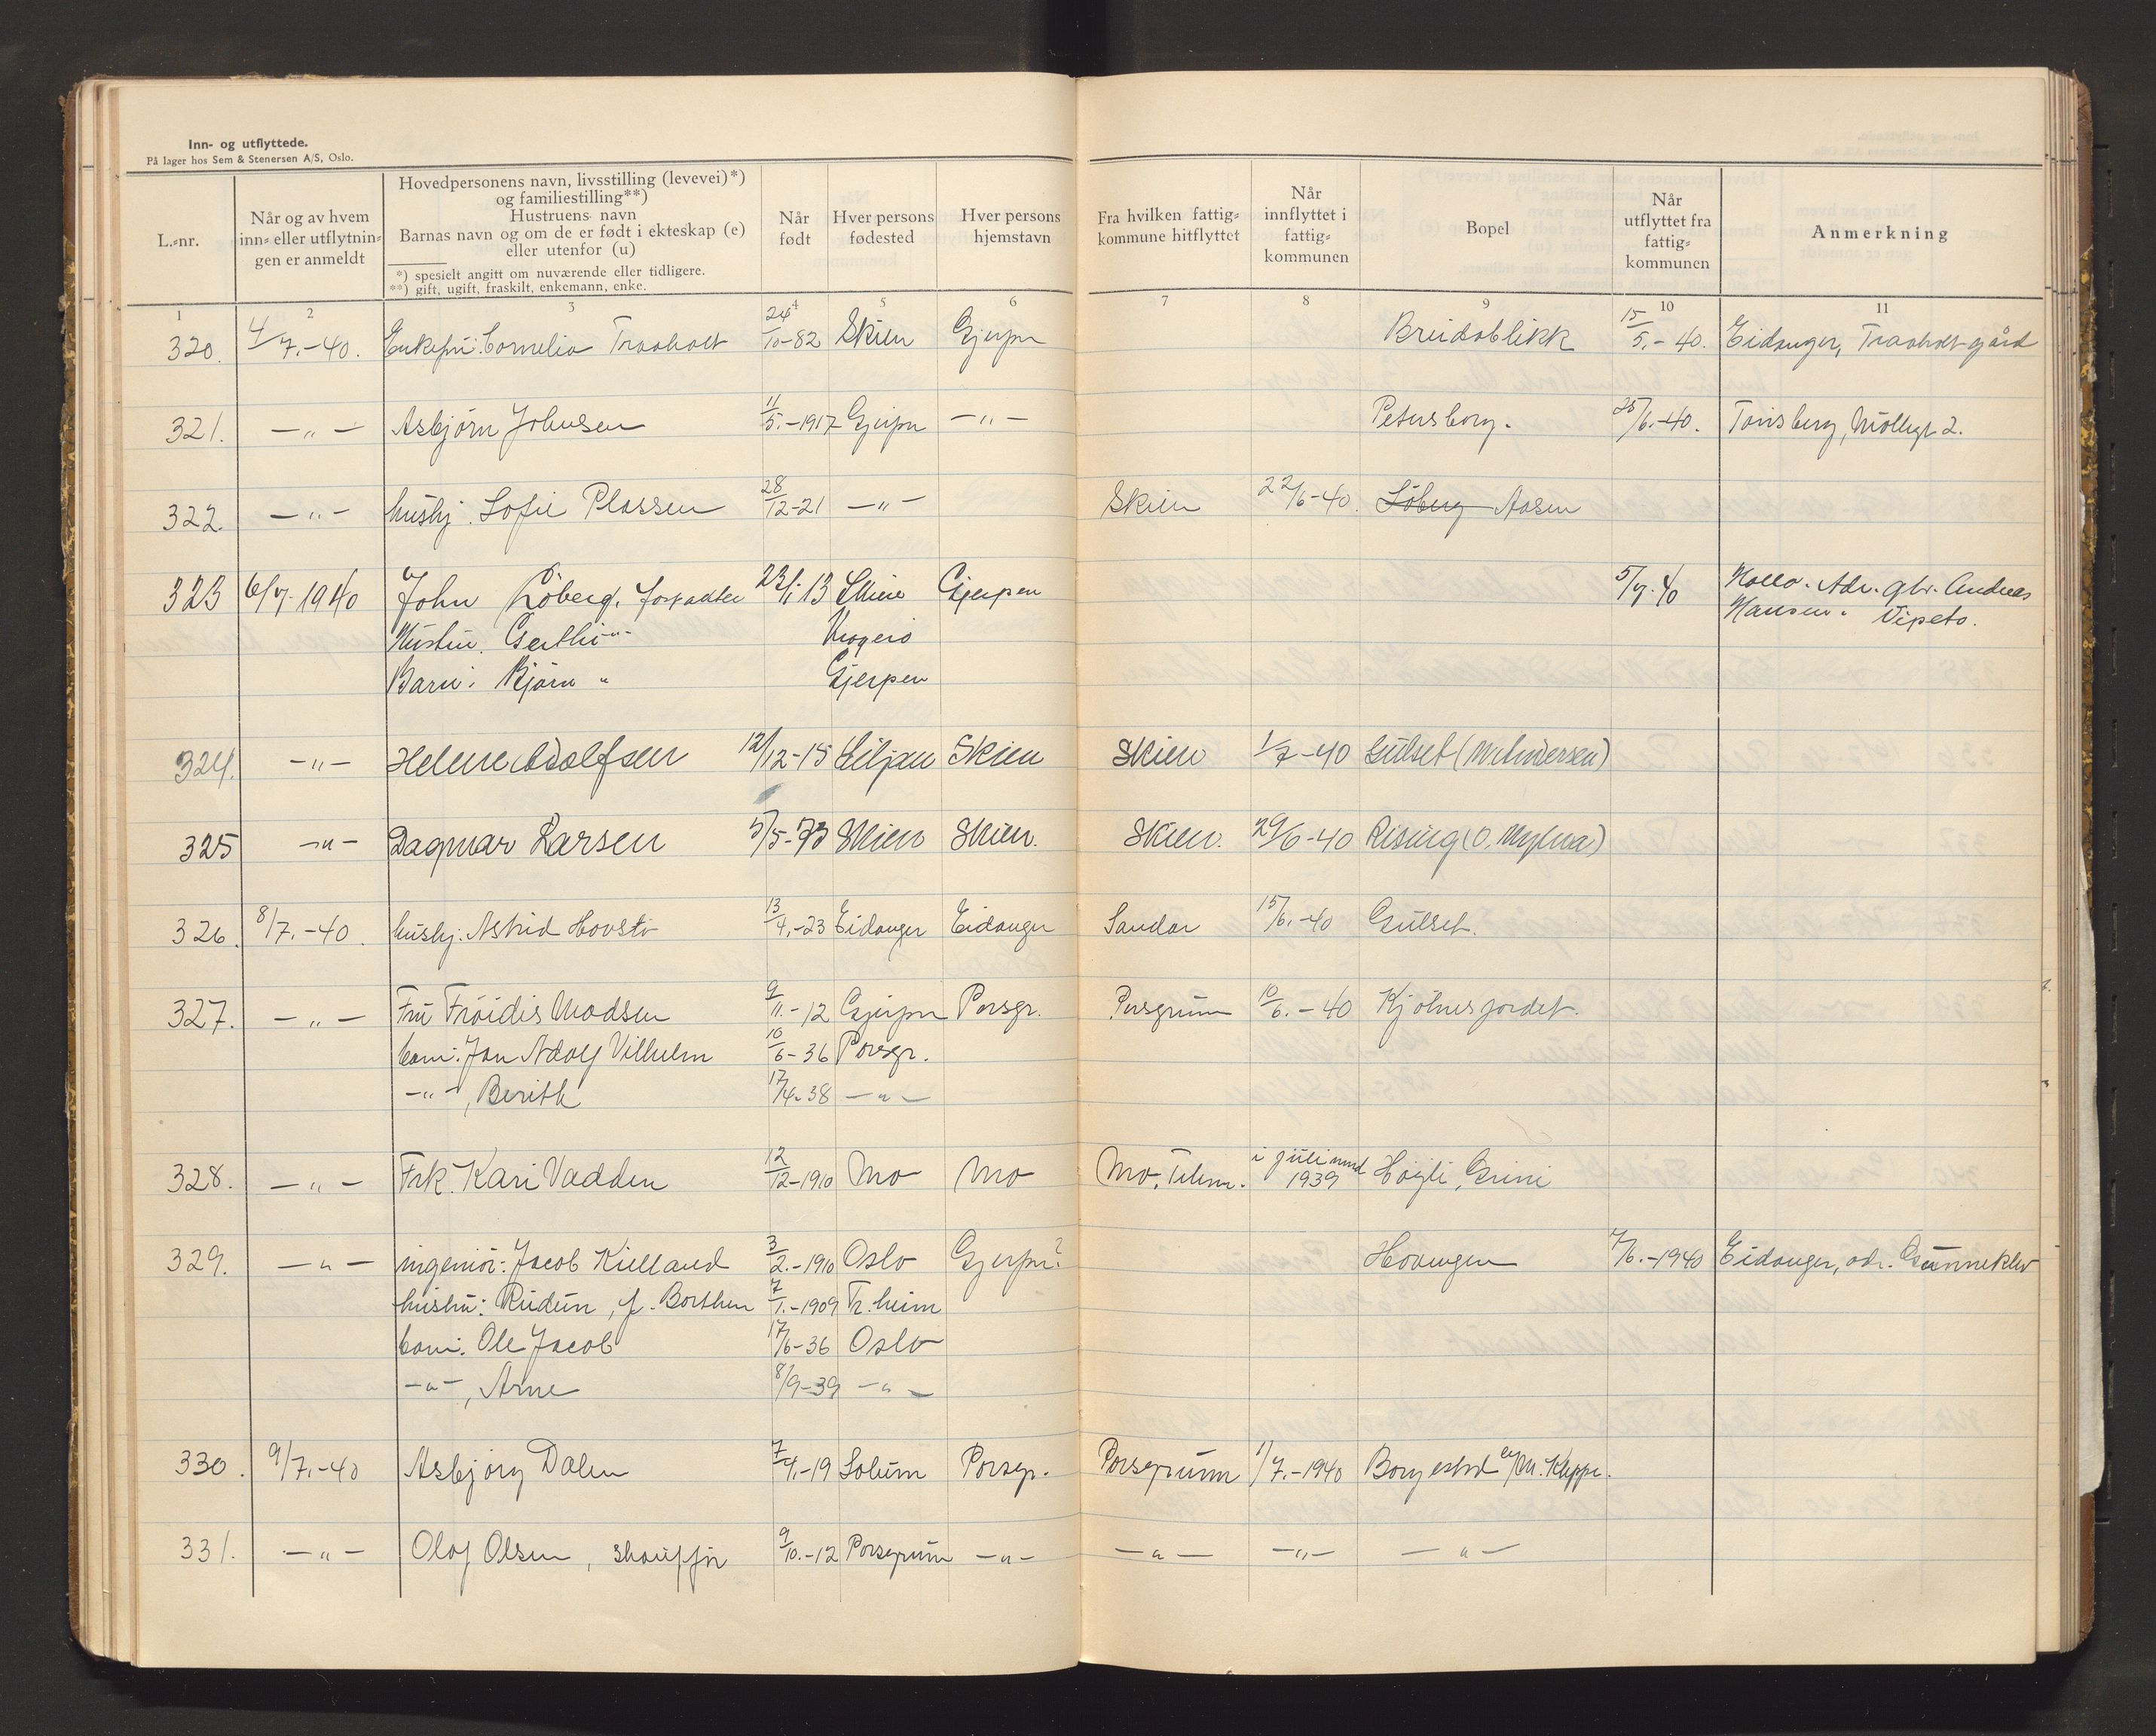 Inn- og utflyttede.
På lager hos Sem & Stenersen A/S, Oslo.
L.-nr.
Når og av hvem inn- eller utflytnin-gen er anmeldt
Hovedpersonens navn, livsstilling (levevei)*)
og familiestilling**)
Hustruens navn
Barnas navn og om de er født i ekteskap (e)
eller utenfor (u)
*) spesielt angitt om nuværende eller tidligere.
**) gift, ugift, fraskilt, enkemann, enke.
Når født
Hver persons fødested
Hver persons hjemstavn
Fra hvilken fattig-kommune hitflyttet
Når innflyttet i fattig-kommunen
Bopel
Når utflyttet fra fattig-kommunen
Anmerkning
1 2 3 4 5 6 7 8 9 10 11
320. 4/7.-40. Enkefru: Cornelia Traaholt 24/10-82 Skien Gjerpen Breidablikk 15/5.-40. Eidanger, Traaholt gård
321. -"- Asbjörn Johnsen 11/5.-1917 Gjerpen -"- Petersborg. 25/6.-40. Tönsberg, Möllegt 2.
322. -"- hushj. Sofie Plassen 28/12-21 -"- Skien 22/6-40. Löberg Aasen
323 6/7.1940 John Löberg, 23/1.13 Skien Gjerpen 5/7.40 Holla. Adr. gbr. Andreas
Hustru. -"- Kragerö Hansen. Vipeto.
Barn: Björn " Gjerpen
324. -"- Helene Adolfsen 12/12-15 Siljan Skien Skien 1/7-40 Gulset (M. Andersen)
325 -"- Dagmar Larsen 5/5-73 Skien Skien. Skien. 29/6-40 Rising (O. Myhra)
326. 8/7.-40. hushj. Astrid Hovsto 13/4.-23 Eidanger Eidanger Sandar 15/6.-40 Gulset.
327. -"- Fru Fröidis Madsen 9/11.-12 Gjerpen Porsgr. Porsgrunn 10/6.-40 Kjölnes jordet.
barn: Jan Adolf Vilhelm 10/6-36 Porsgr.
-"-, Berith 17/4-38 -"-
328. -"- Frk. Kari Vadden 12/12-1910 Mo Mo Mo, Telem. i juli mnd 1939 Högli, Grini
329. -"- ingeniör: Jacob Kielland 3/2.-1910 Oslo Gjerpen? Hovengen 7/6.-1940 Eidanger, adr. Gunneklev
hustru: Rudun, f. Borthen 7/1.-1909 Tr.heim
barn: Ole Jacob 17/6-36 Oslo
-"-, Arne 8/9-39 -"-
330. 9/7.-40 Asbjörg Dalen 7/4.-19 Solum Porsgr. Porsgrunn 1/7.-1940 Borgestad M. Kleppe.
331. -"- Olaf Olsen, 9/10.-12 Porsgrunn -"- -"- -"- -"-